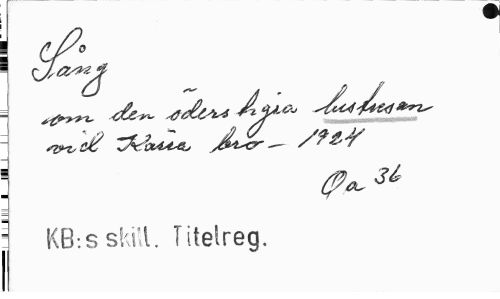 Sång
om den ödesdigra lustresan
vid Kärra bro - 1924
Qa 36
KB:s skill. Titelreg.